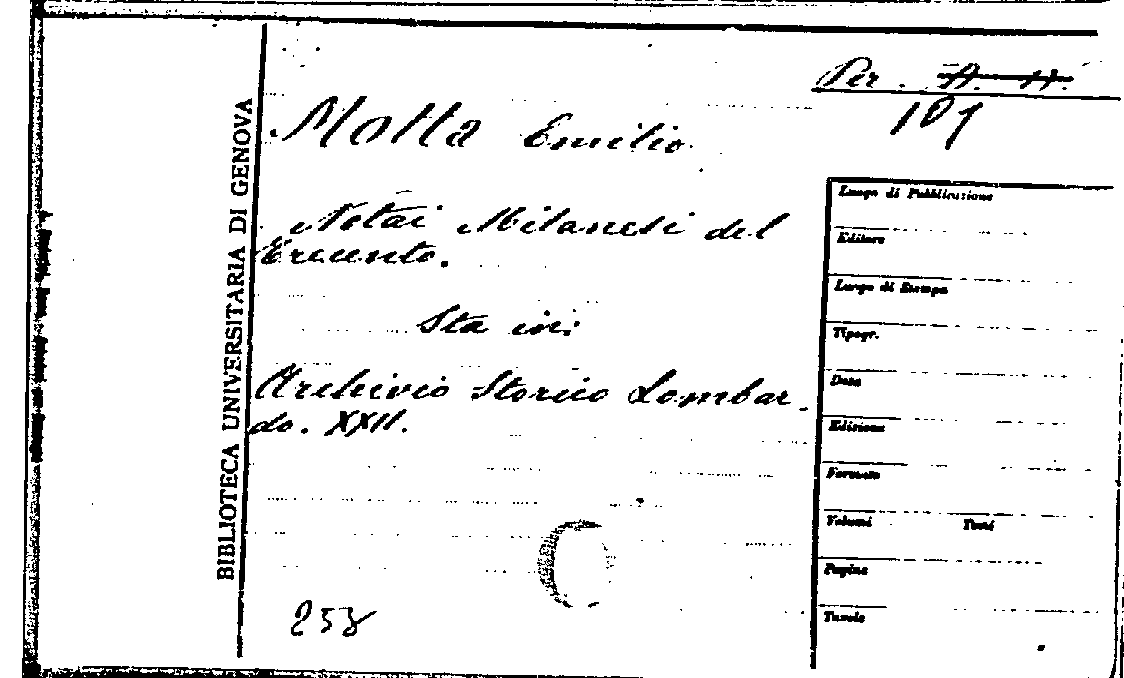 Per. A. H.
101
Motta Emilio
Notai Milanesi del
Trecento.
Sta in:
Archivio Storico Lombar-
do. XXII.
258
BIBLIOTECA UNIVERSITARIA DI GENOVA
Luogo di Pubblicazione
Editore
Luogo di Stampa
Tipogr.
Data
Edizione
Formato
Volumi Tomi
Pagine
Tavole